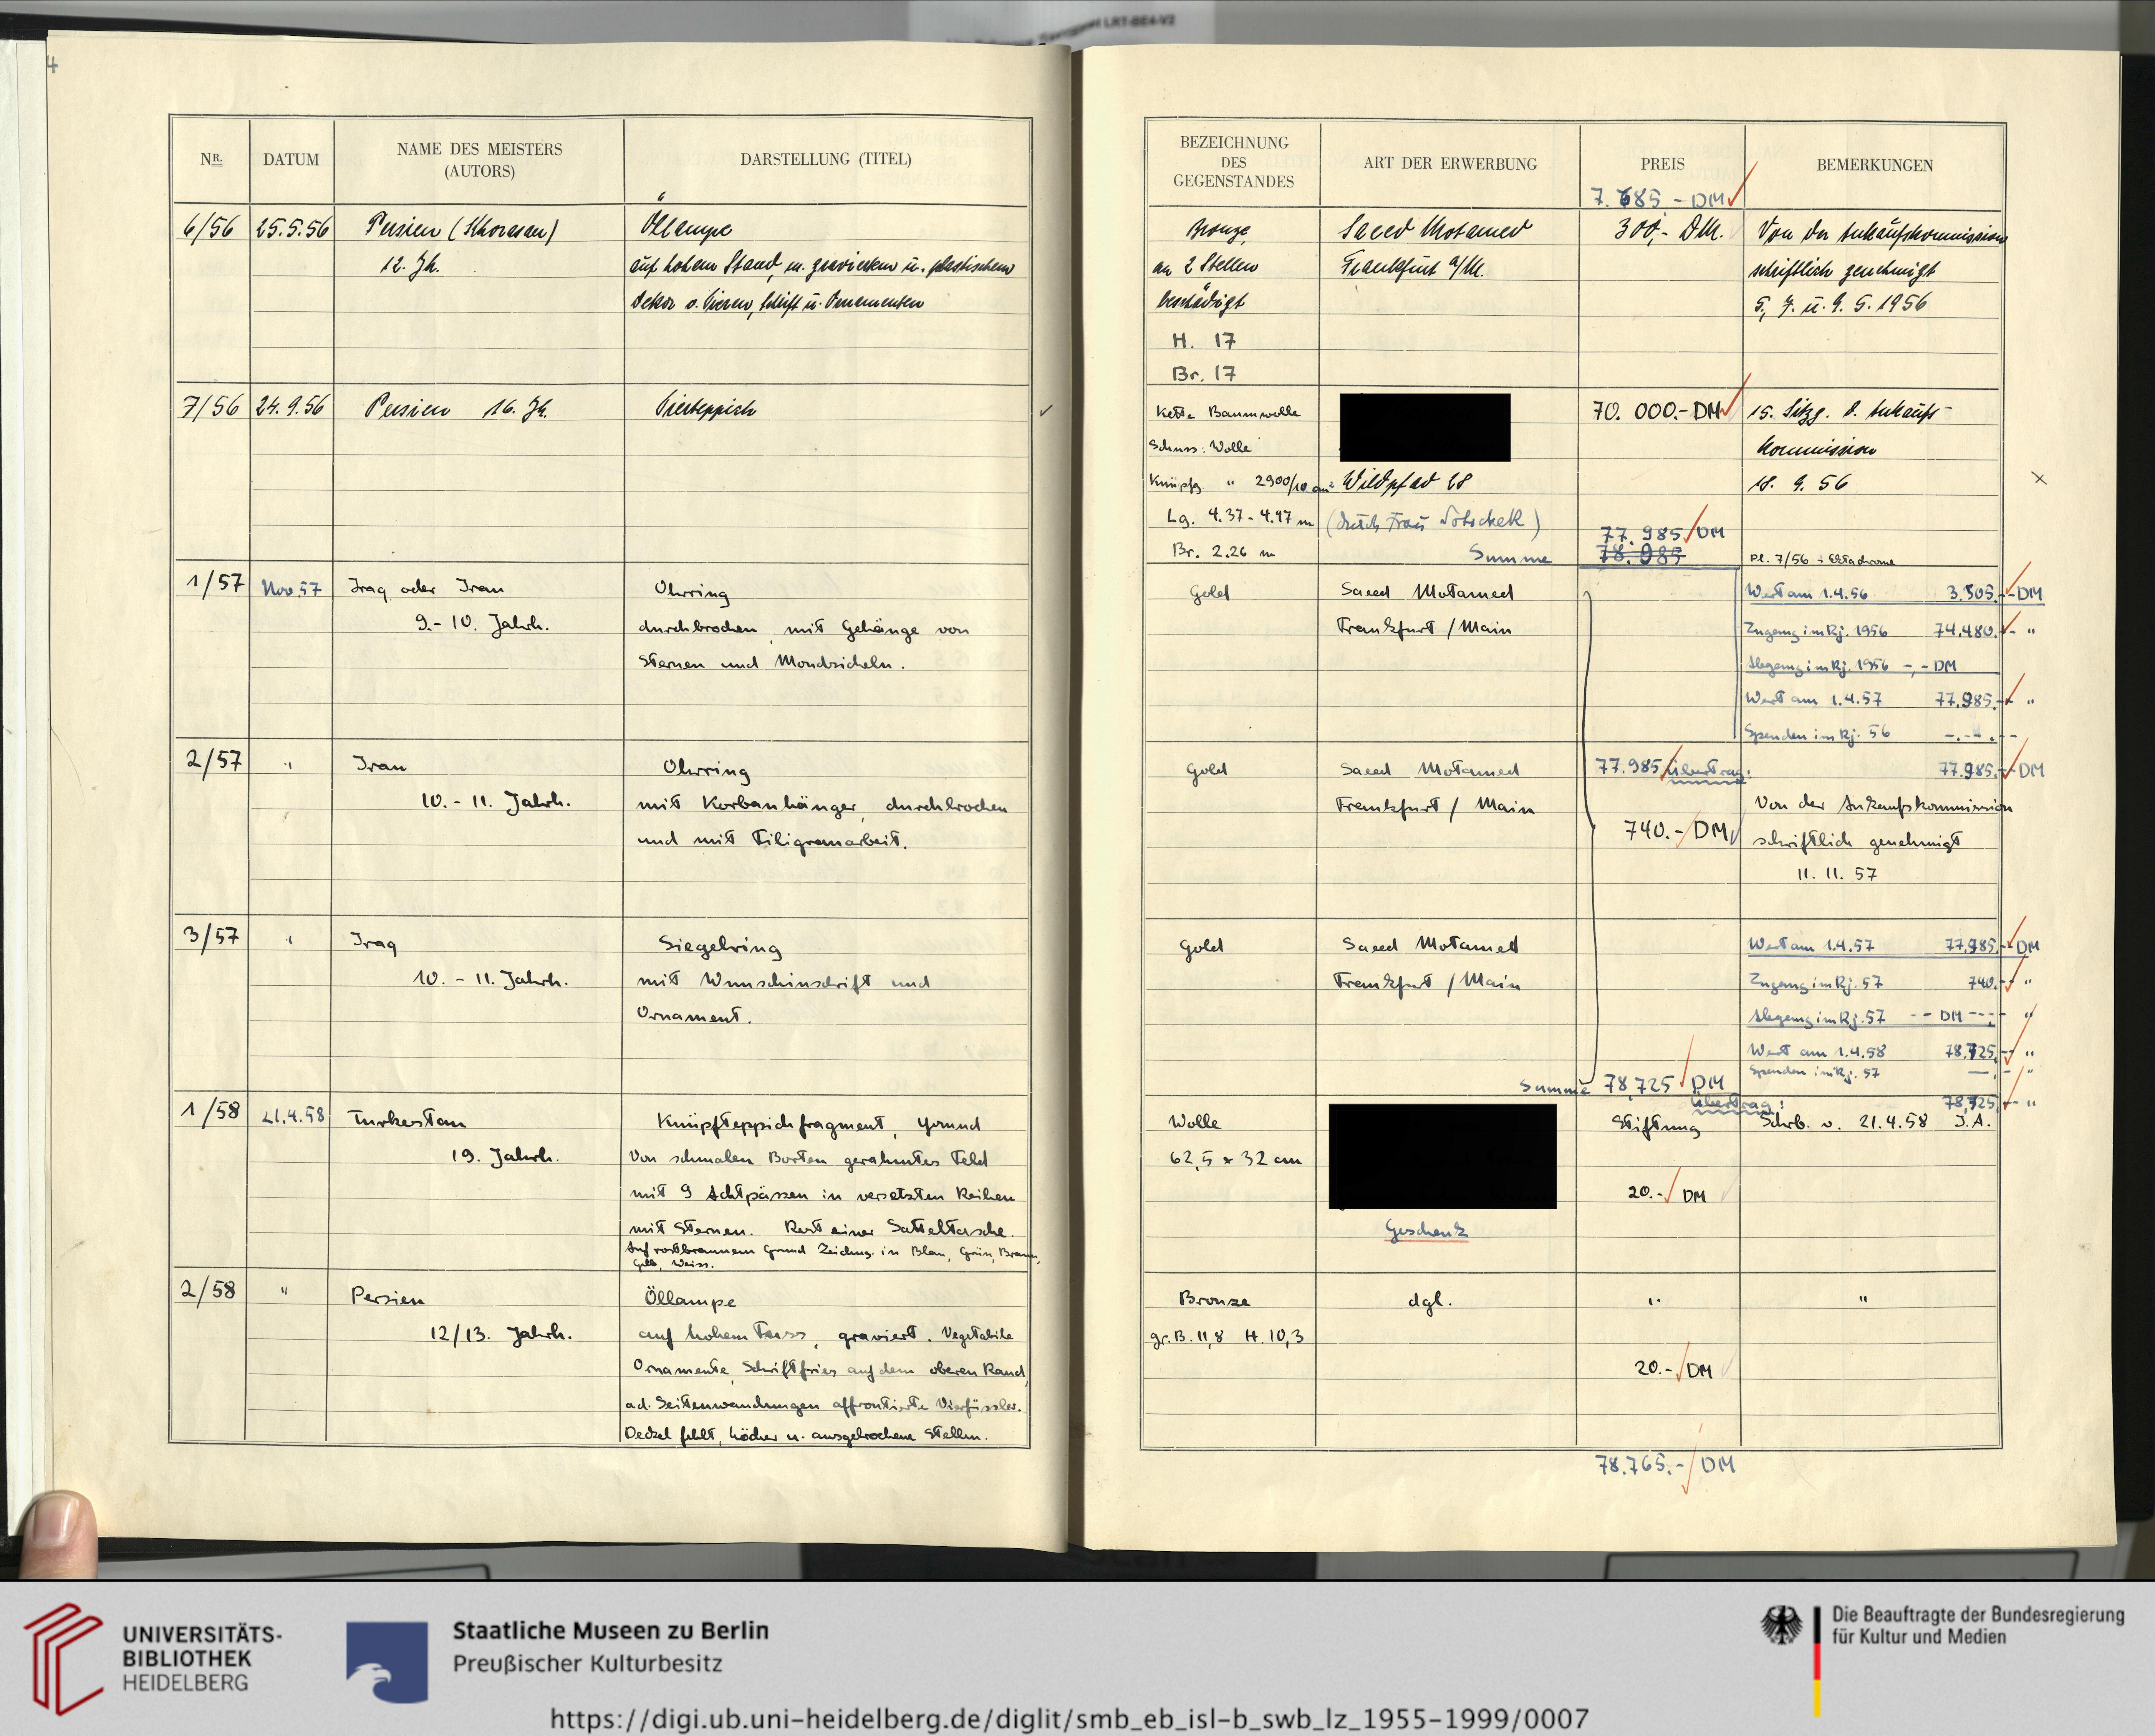 4
NR.
DATUM
NAME DES MEISTERS
(AUTORS)
DARSTELLUNG (TITEL)
6/56 25.5.56 Persien (Khorasan) Öllampe
12. Jh. auf hohem Stand, m. graviertem u. plastischem
Dekor v. Tieren, Schrift u. Ornamenten
7/56 24.9.56 Persien 16. Jh. Tierteppich
1/57 Nov. 57 Iraq oder Iran Ohrring
9.-10. Jahrh. durchbrochen, mit Gehänge von
Sternen und Mondsicheln.
2/57 " Iran Ohrring
10.-11. Jahrh. mit Korbanhänger, durchbrochen
und mit Filigranarbeit.
3/57 " Iraq Siegelring
10.-11. Jahrh. mit Wunschinschrift und
Ornament.
1/58 21.4.58 Turkestan Knüpfteppichfragment, Yomud
19. Jahrh. Von schmalen Borten gerahmtes Feld
mit 9 Achtpässen in versetzten Reihen
mit Sternen. Rest einer Satteltasche.
Auf rostbraunem Grund Zeichng. in Blau, Grün, Braun,
Gelb, Weiss.
2/58 " Persien Öllampe
12/13. Jahrh. auf hohem Fuss, graviert. Vegetabile
Ornamente, Schriftfries auf dem oberen Rand,
a.d. Seitenwandungen affrontierte Vierfüssler.
Deckel fehlt, Löcher u. ausgebrochene Stellen.
BEZEICHNUNG
DES
GEGENSTANDES
ART DER ERWERBUNG
PREIS
BEMERKUNGEN
7.685 - DM
Bronze, Saeed Motamed 300,- DM. Von der Ankaufskommission
an 2 Stellen Frankfurt a/M. schriftlich genehmigt
beschädigt 5., 7. u. 9. 5. 1956
H. 17
Br. 17
Kette Baumwolle 70.000.- DM 15. Sitzg. d. Ankaufs-
Schuss: Wolle Kommission
Knüpfg. " 2900/10 cm² Wildpfad 28 18. 9. 56
Lg. 4.37-4.47 m (durch Frau)
77.985 DM
Br. 2.26 m Summe 78.985 Pl. 7/56 + Ektachrome
Gold Saeed Motamed Wert am 1.4.56 3.505.-- DM
Frankfurt/Main Zugang im Rj. 1956 74.480.- "
Abgang im Rj. 1956 -,- DM
Wert am 1.4.57 77.985.-- "
Spenden im Rj. 56 -.-".--
Gold Saeed Motamed 77.985 Übertrag: 77.985.-- DM
Frankfurt / Main Von der Ankaufskommission
740.- DM schriftlich genehmigt
11. 11. 57
Gold Saeed Motamed Wert am 1.4.57 77.985.-- DM
Frankfurt / Main Zugang im Rj. 57 740.-- "
Abgang im Rj. 57 -- DM ---- "
Wert am 1.4.58 78.725.-- "
Spenden im Rj. 57 --,- "
Summe 78,725 DM
Übertrag: 78,725,-- "
Wolle Stiftung Schrb. v. 21.4.58 J.A.
62,5 x 32 cm
20.- DM
Geschenk
Bronze dgl. " "
gr.B. 11,8 H. 10,3
20.- DM
78.765.- DM
UNIVERSITÄTS-
BIBLIOTHEK
HEIDELBERG
Staatliche Museen zu Berlin
Preußischer Kulturbesitz
Die Beauftragte der Bundesregierung
für Kultur und Medien
https://digi.ub.uni-heidelberg.de/diglit/smb_eb_isl-b_swb_lz_1955-1999/0007